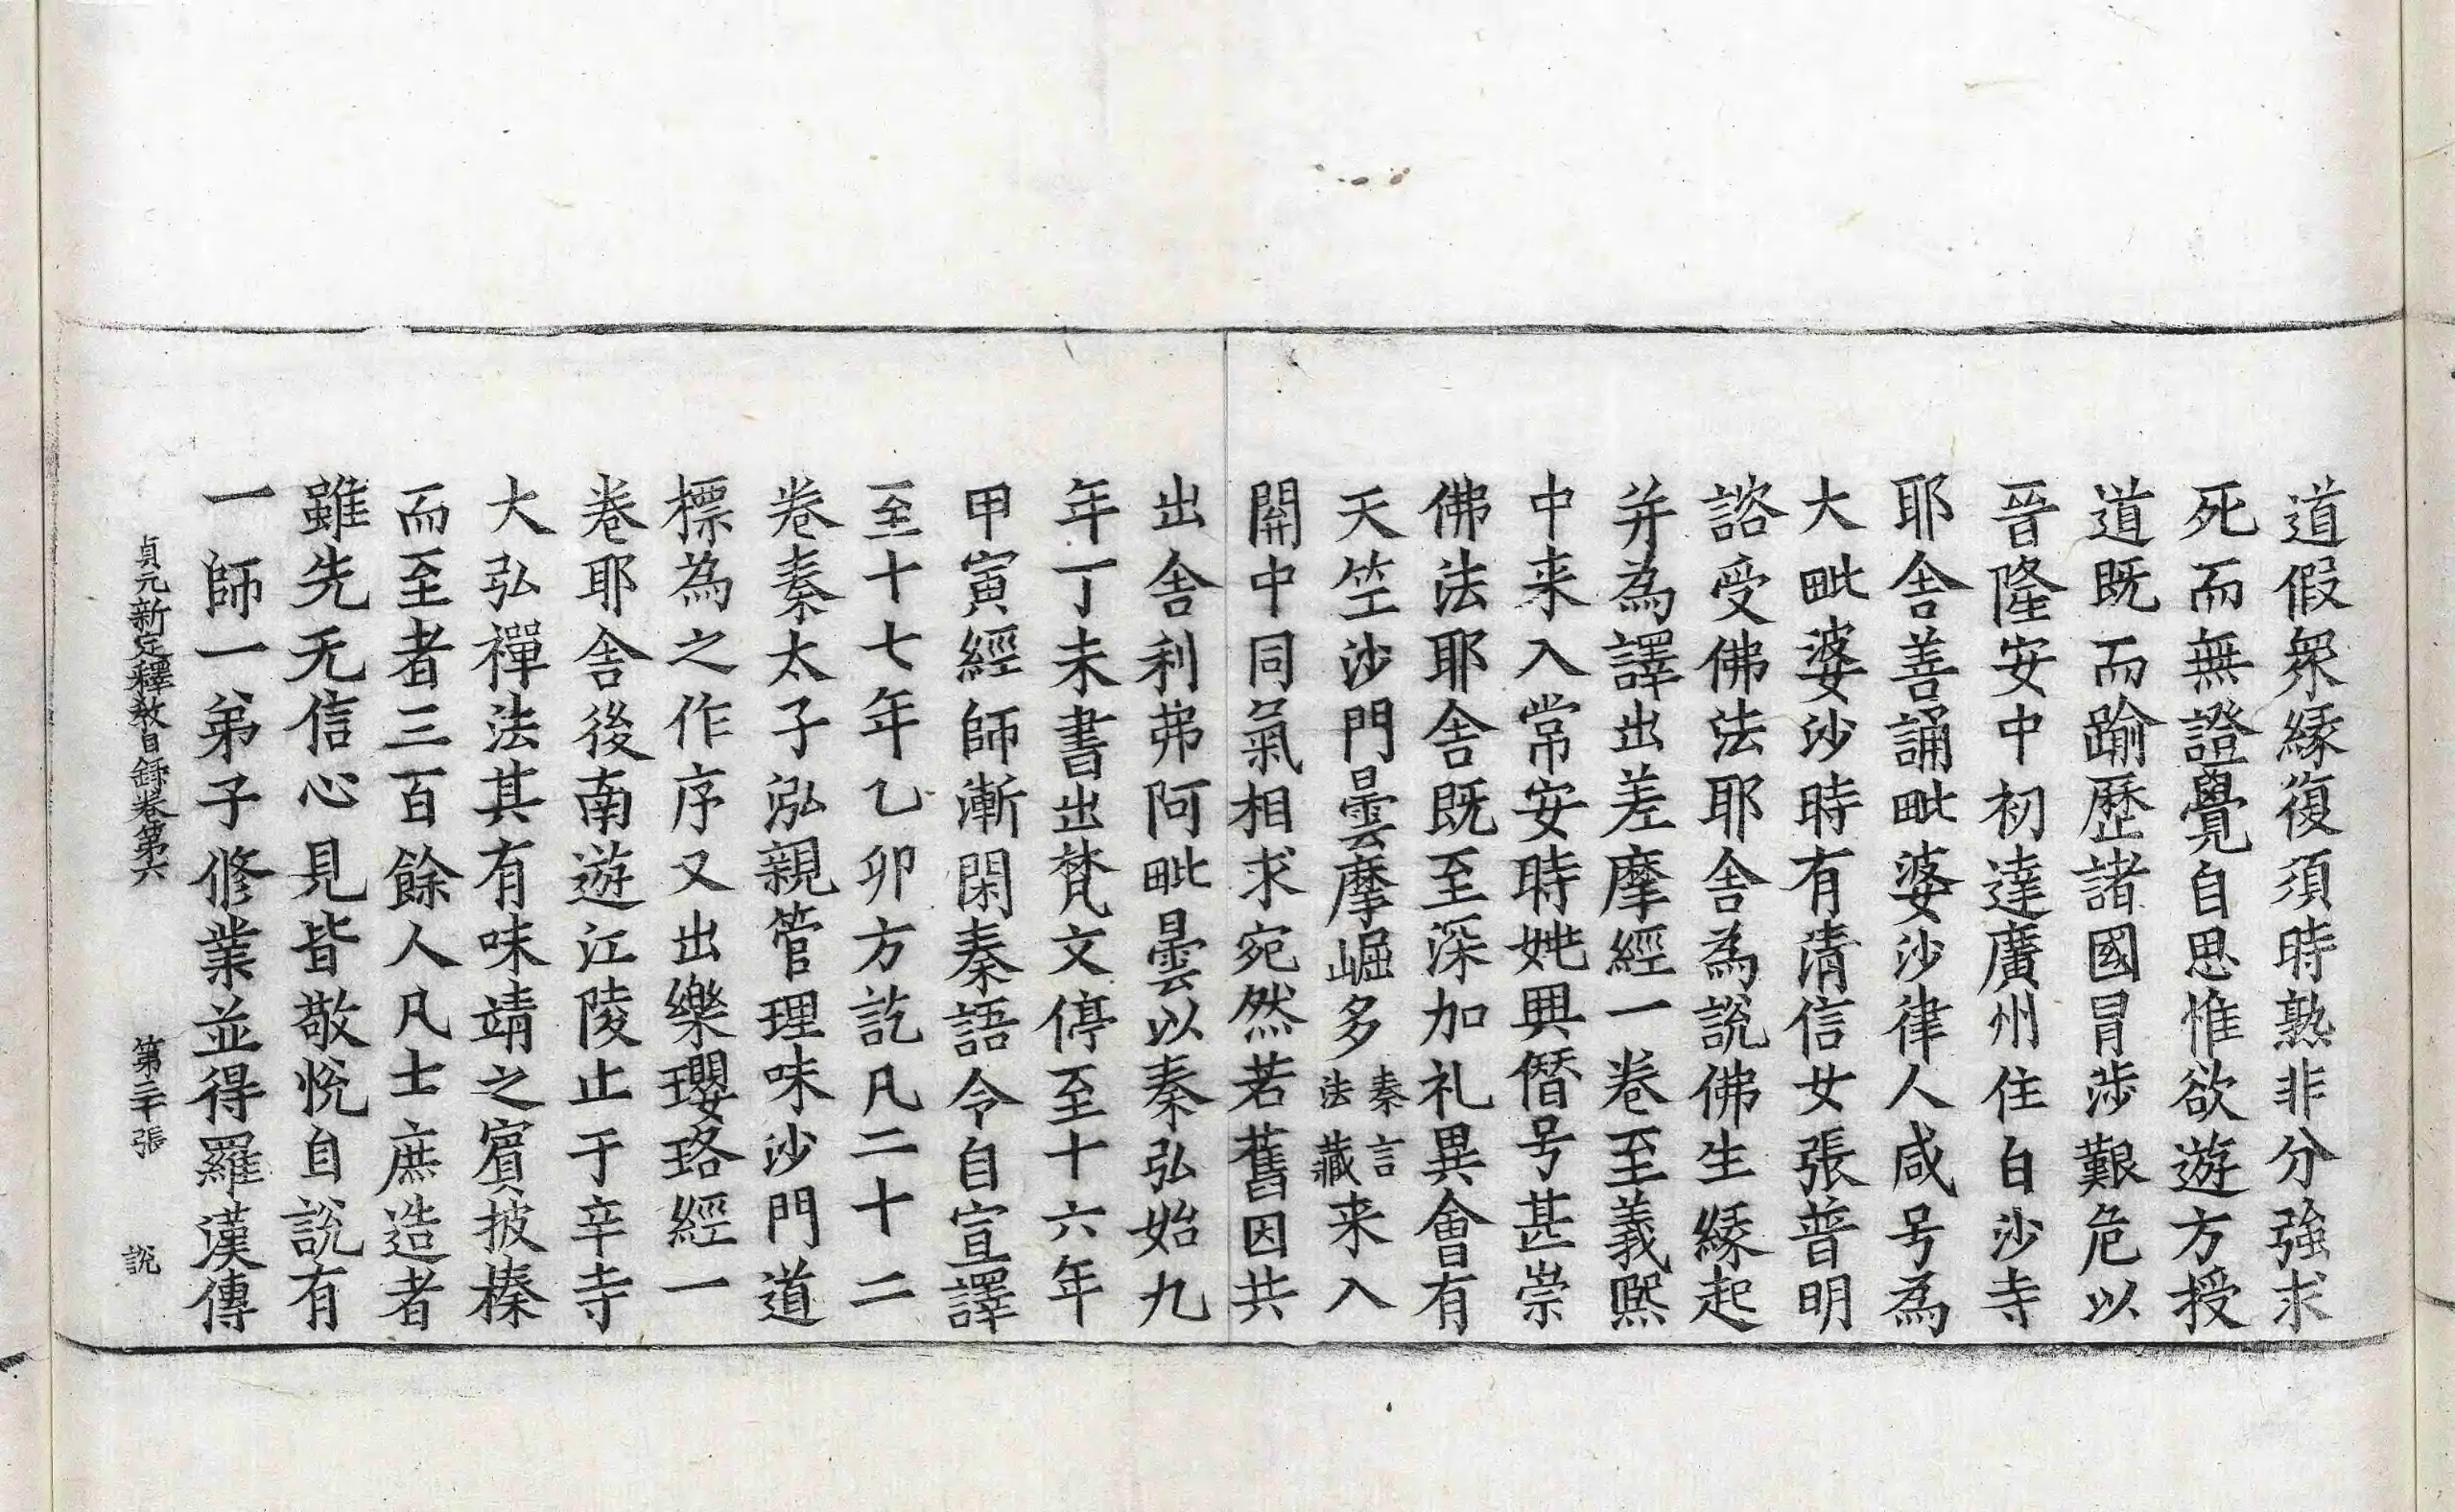 道假衆緣復須時熟非分強求
死而無證覺自思惟欲遊方授
道既而踰歷諸國冒涉艱危以
晉隆安中初達廣州住白沙寺
耶舍善誦毗婆沙律人咸号為
大毗婆沙時有清信女張普明
諮受佛法耶舍為說佛生緣起
并為譯出差摩經一卷至義熙
中来入常安時姚興僭号甚崇
佛法耶舍既至深加礼異會有
天竺沙門曇摩崛多秦言法藏来入
開中同氣相求宛然若舊因共
出舍利弗阿毗曇以秦弘始九
年丁未書出梵文停至十六年
甲寅經師漸閑秦語令自宣譯
至十七年乙卯方訖凡二十二
卷秦太子泓親管理味沙門道
標為之作序又出樂瓔珞經一
卷耶舍後南遊江陵止于辛寺
大弘禪法其有味靖之賓披榛
而至者三百餘人凡士庶造者
雖先无信心見皆敬悅自說有
一師一弟子修業並得羅漢傳
貞元新定釋教目録卷第六 第二十張 說